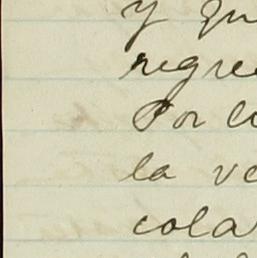 y qu
regre
Por l
la ve
cola